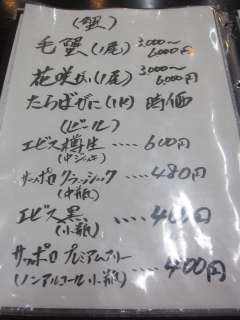 (蟹)
毛蟹(1尾) 3,000〜6,000円
花咲がに(1尾) 3,000〜6,000円
たらばがに(1肩) 時価
(ビール)
エビス樽生 ‥‥ 600円
(中ジョッキ)
サッポロクラッシック ‥‥ 480円
(中瓶)
エビス黒 ‥‥ 400円
(小瓶)
サッポロプレミアムアルコールフリー ‥‥ 400円
(ノンアルコール小瓶)